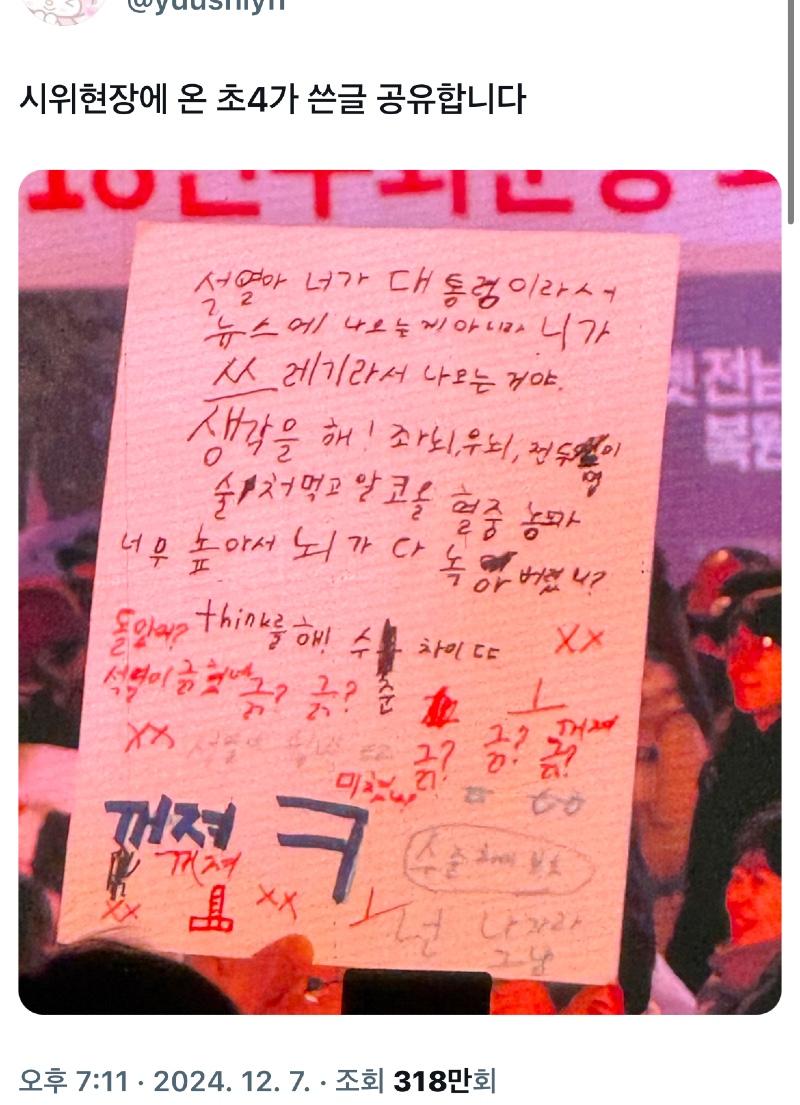 @yuushiyn
시위현장에 온 초4가 쓴글 공유합니다
석열아 너가 대통령이라서
뉴스에 나오는게 아니라 니가
쓰레기라서 나오는 거야.
생각을 해! 좌뇌,우뇌, 전두엽이
술 처먹고 알코올 혈중 농도가
너무 높아서 뇌가 다 녹아 버렸니?
돌았어? think를 해! 수준 차이 ㄷㄷ
XX
석열이 긁혔네
긁? 긁?
ㅗ
XX
긁? 긁? 긁?
꺼져
미쳤냐
ㅁ
꺼져 ㅋ
꺼져
XX
ㅗ
XX
ㅗ
넌 나자라
그냥
전남
복원
오후 7:11 · 2024. 12. 7. · 조회 318만회